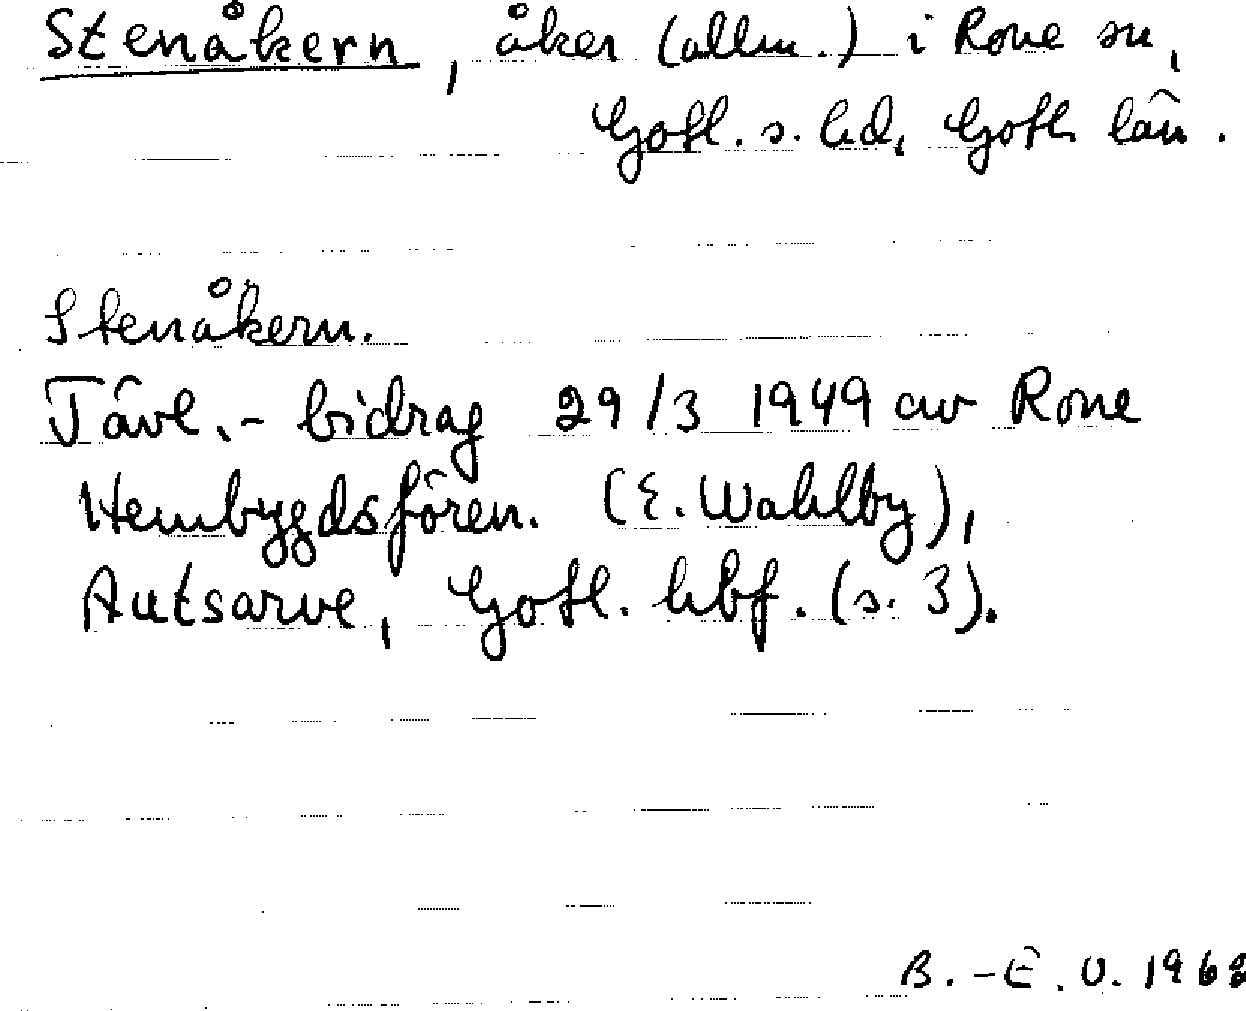 Stenåkern, åker (allm.) i Rone sn,
Gotl. s. hd, Gotl. län.
Stenåkern.
Tävl.-bidrag 29/3 1949 av Rone
Hembygdsfören. (E. Wahlby),
Autsarve, Gotl. hbf. (s. 3).
B.-E. U. 1968